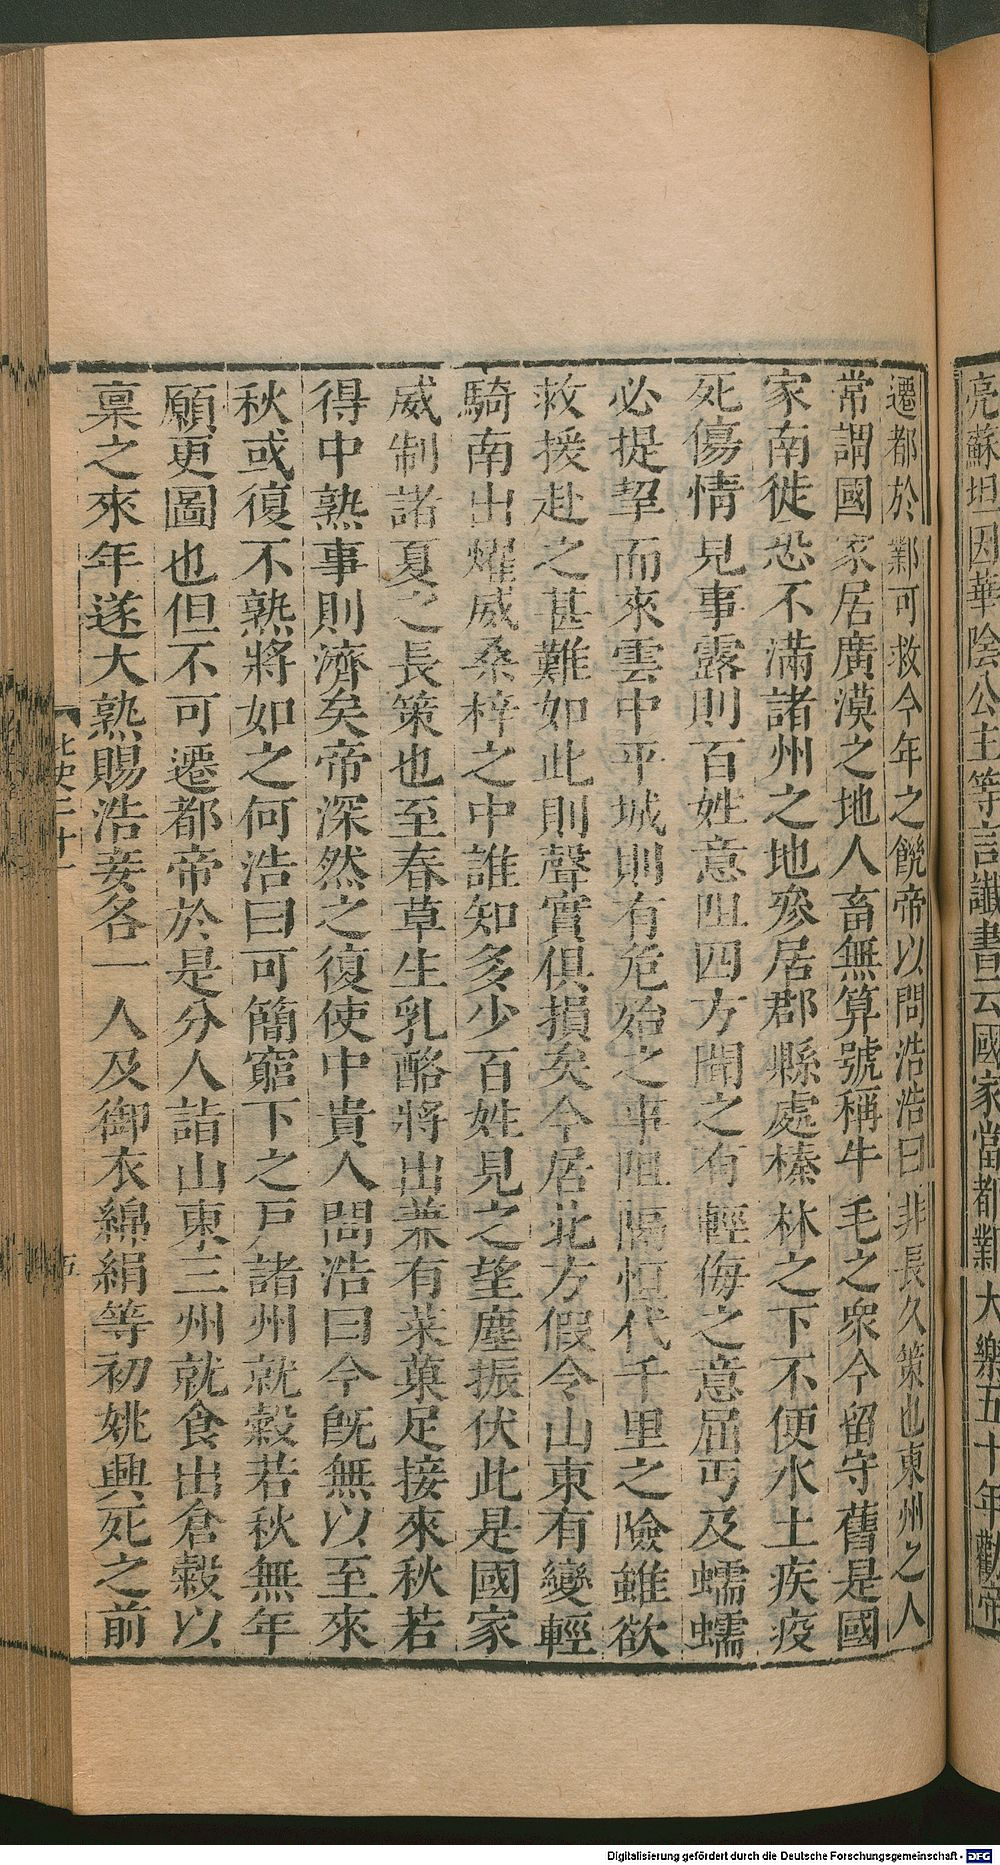 亮蘇坦因華陰公主等言讖書云國家當都鄴大樂五十年勸帝
遷都於鄴可救今年之饑帝以問浩浩曰非長久策也東州之人
常謂國家居廣漠之地人畜無算號稱牛毛之衆今留守舊是國
家南徙恐不滿諸州之地參居郡縣處榛林之下不便水土疾疫
死傷情見事露則百姓意阻四方聞之有輕侮之意屈丐及蠕蠕
必提挈而來雲中平城則有危殆之事阻隔恒代千里之險雖欲
救援赴之甚難如此則聲實俱損矣今居北方假令山東有變輕
騎南出燿威桑梓之中誰知多少百姓見之望塵振伏此是國家
威制諸夏之長策也至春草生乳酪將出兼有菜菓足接來秋若
得中熟事則濟矣帝深然之復使中貴人問浩曰今既無以至來
秋或復不熟將如之何浩曰可簡窮下之戸諸州就穀若秋無年
願更圖也但不可遷都帝於是分人詣山東三州就食出倉穀以
稟之來年遂大熟賜浩妾各一人及御衣綿絹等初姚興死之前
北史二十一
五
Digitalisierung gefördert durch die Deutsche Forschungsgemeinschaft - DFG